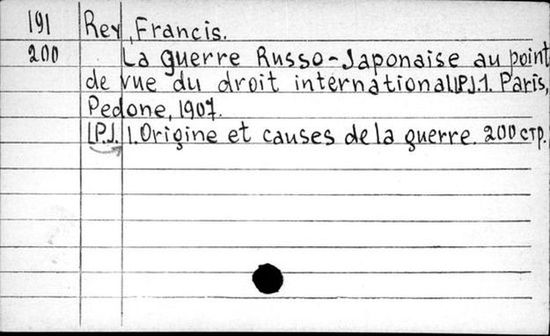 191 Rey, Francis.
200 La guerre Russo-Japonaise au point
de vue du droit international[P.].1. Paris,
Pedone, 1907.
[P.]. 1. Origine et causes de la guerre. 200 стр.